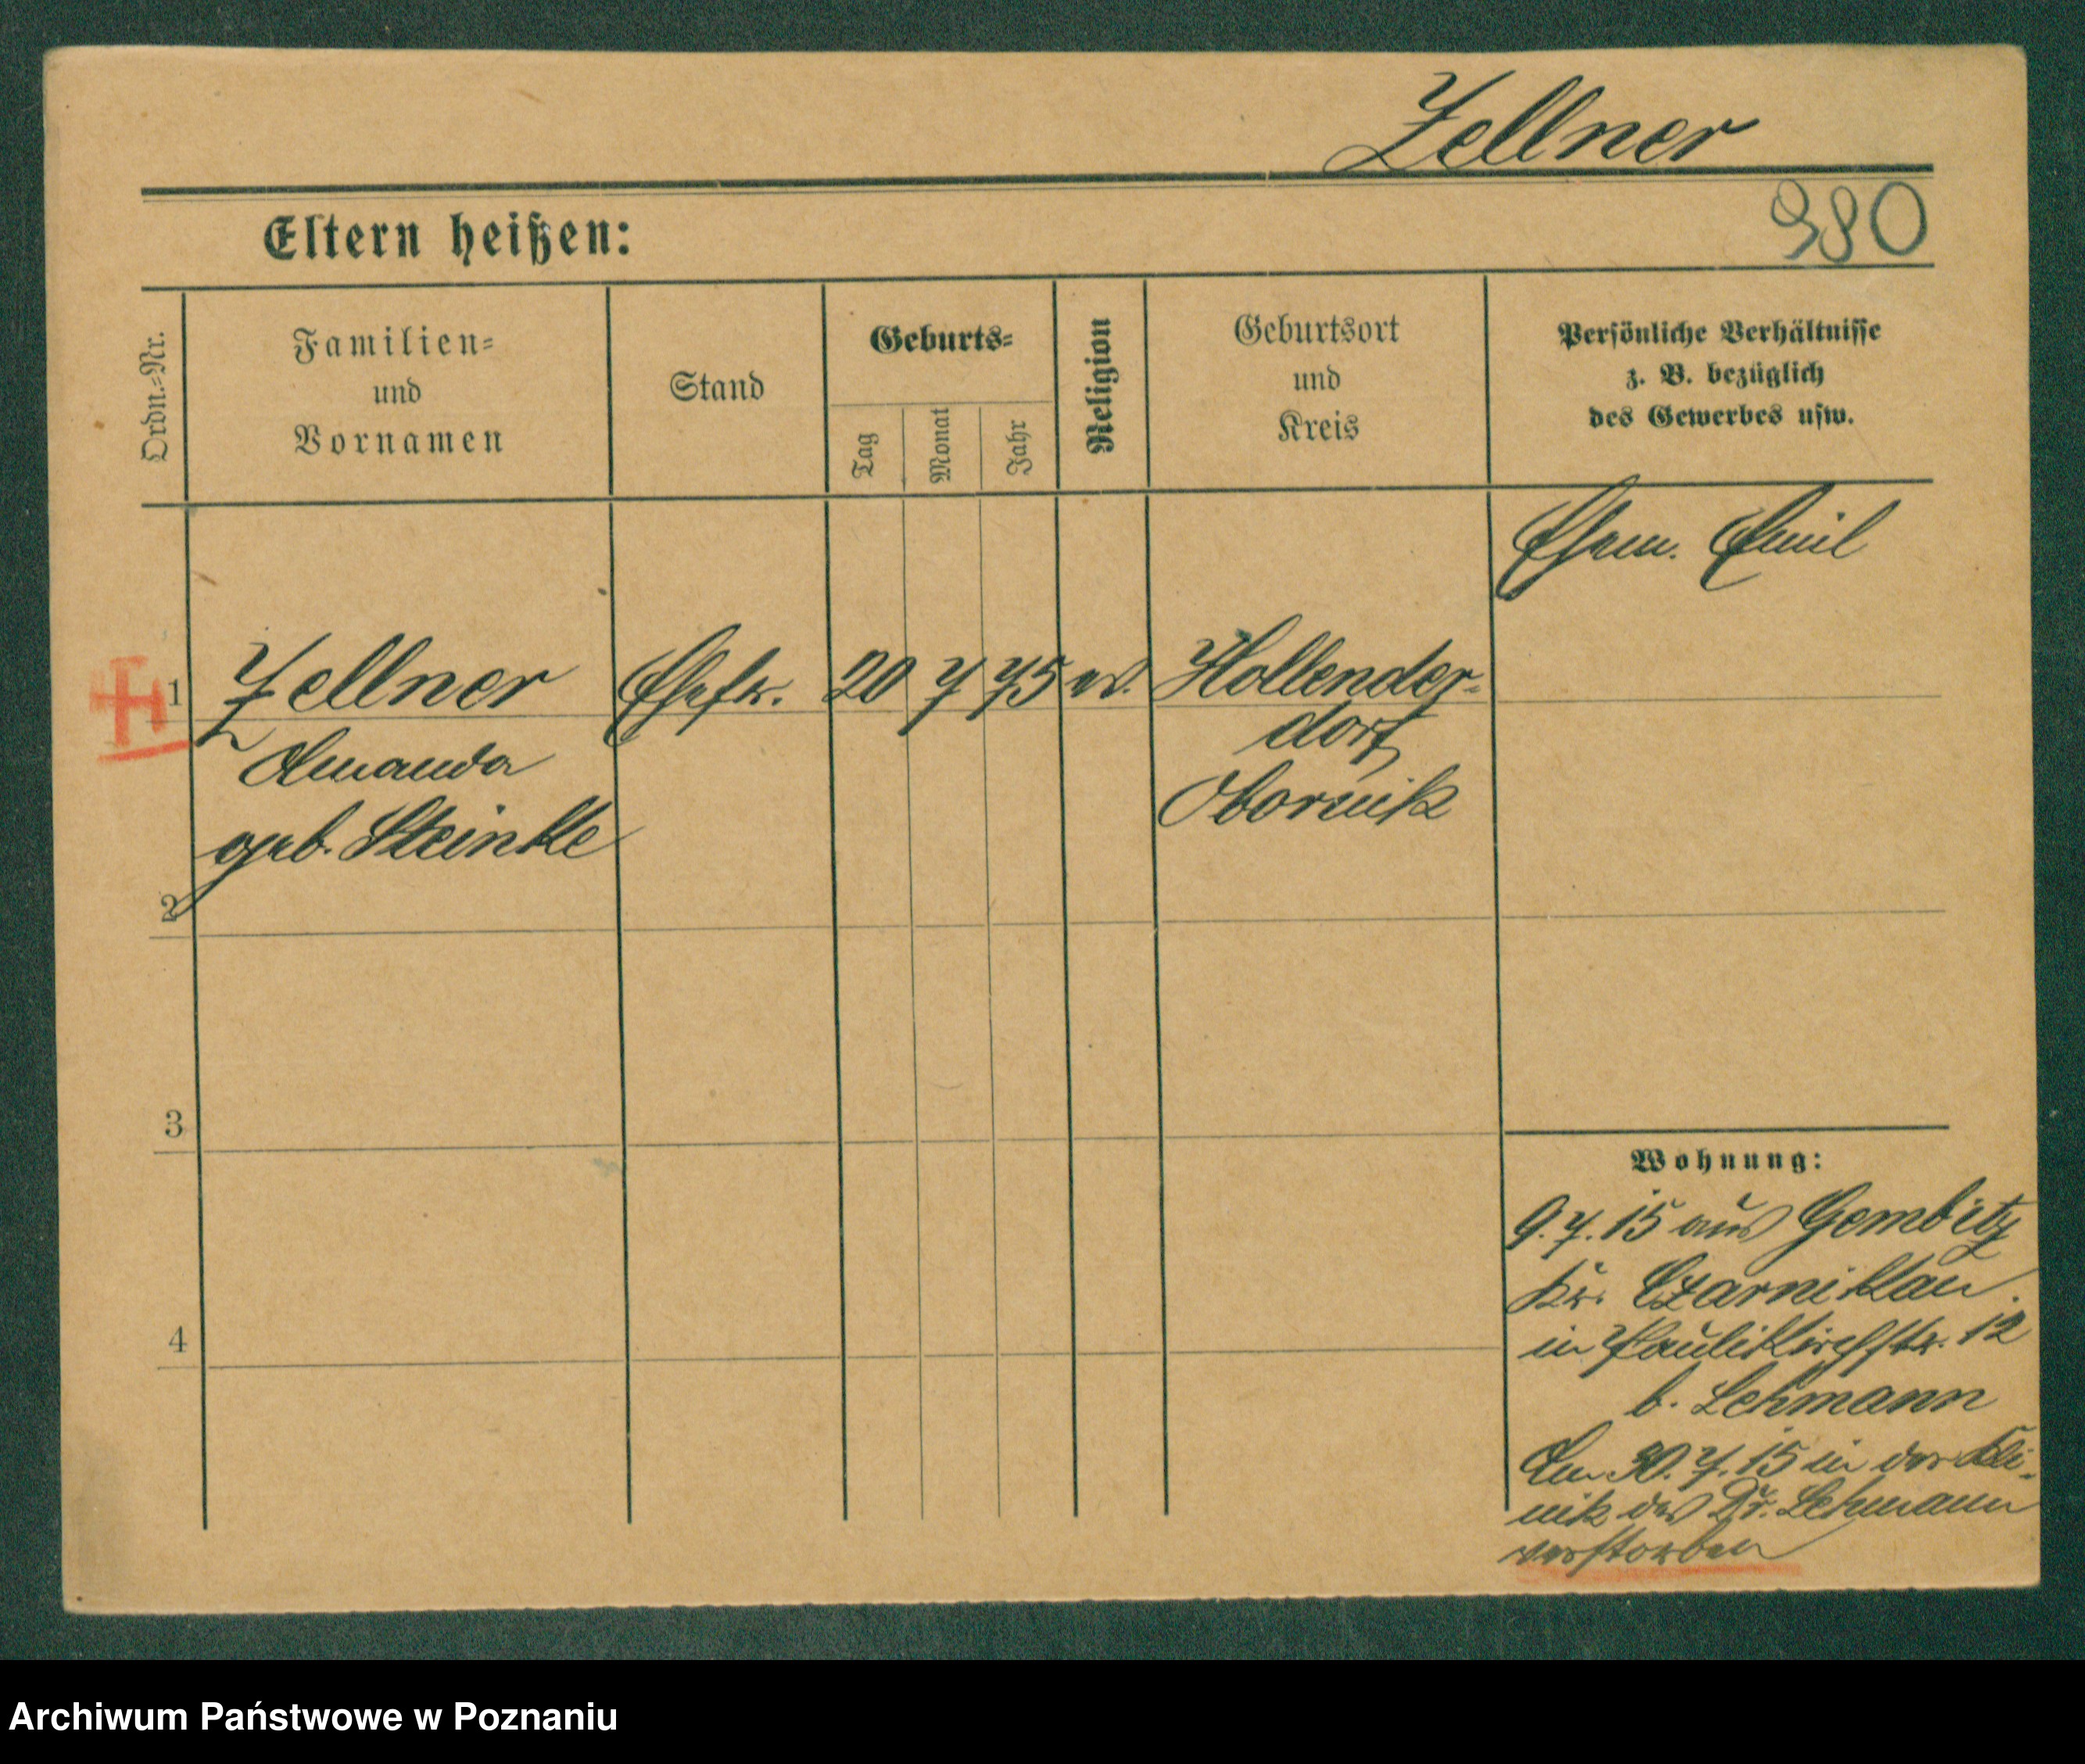 Zellner
980
Eltern heißen:
Ordn.=Nr.
Familien=
und
Vornamen
Stand
Geburts=
Tag
Monat
Jahr
Religion
Geburtsort
und
Kreis
Persönliche Verhältnisse
z. B. bezüglich
des Gewerbes usw.
Ehem. Emil
1
Zellner Ehefr. 20 7 75 ev. Hollender-
dorf
Amanda
Obornik
geb. Steinke
2
3
4
Wohnung:
9.7.15 aus Gembitz
Kr. Czarnikau
in Paulikirchstr. 12
b. Lehmann
Am 30.7.15 in der Kli-
nik des Dr. Lehmann
verstorben
Archiwum Państwowe w Poznaniu